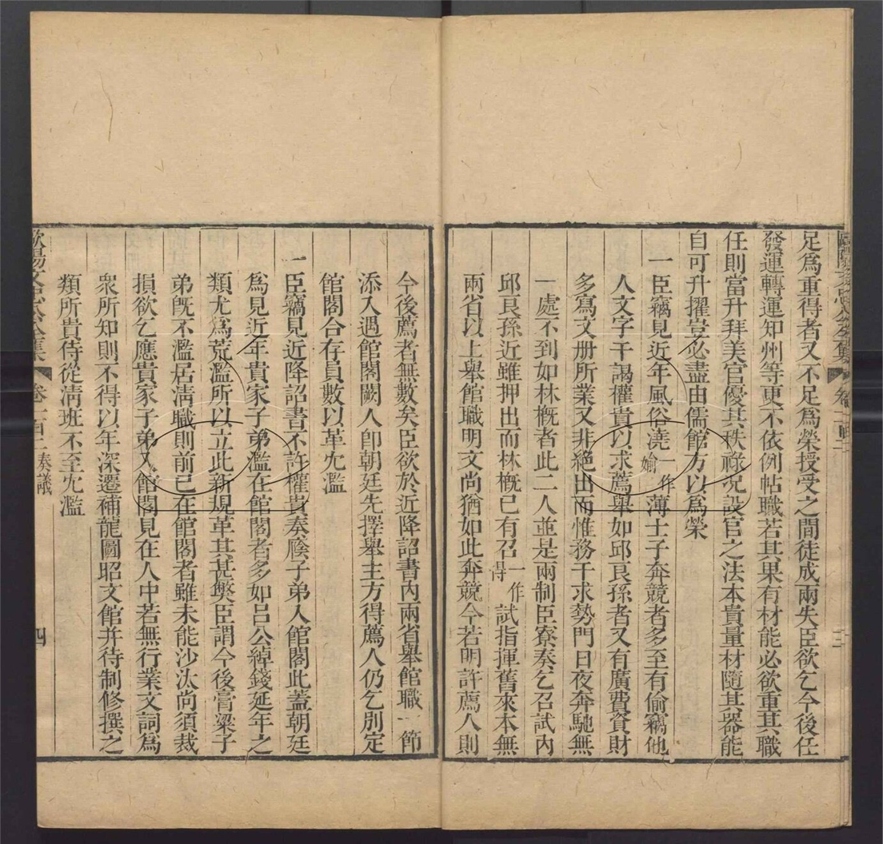 足爲重得者又不足爲榮授受之間徒成兩失臣欲乞今後任
發運轉運知州等更不依例帖職若其果有材能必欲重其職
任則當升拜美官優其秩祿况設官之法本貴量材隨其器能
自可升擢豈必盡由儒館方以爲榮
一臣竊見近年風俗澆一作媮薄士子奔競者多至有偷竊他
人文字干謁權貴以求薦舉如邱良孫者又有廣費貲財
多寫文册所業又非絕出而惟務干求勢門日夜奔馳無
一處不到如林槪者此二人並是兩制臣寮奏乞召試內
邱良孫近雖押出而林槪已有召一作得試指揮舊來本無
兩省以上舉館職明文尚猶如此奔競今若明許薦人則
今後薦者無數矣臣欲於近降詔書内兩省舉館職一節
添入遇館閣闕人卽朝廷先擇舉主方得薦人仍乞別定
館閣合存員數以革冗濫
一臣竊見近降詔書不許權貴奏廕子弟入館閣此蓋朝廷
爲見近年貴家子弟濫在館閣者多如呂公綽錢延年之
類尤爲荒濫所以立此新規革其甚獘臣謂今後膏粱子
弟旣不濫居淸職則前已在館閣者雖未能沙汰尚須裁
損欲乞應貴家子弟入館閣見在人中若無行業文詞爲
衆所知則不得以年深遷補龍圖昭文館并待制修撰之
類所貴侍從淸班不至冗濫
歐陽文忠公全集 卷一百二奏議 四